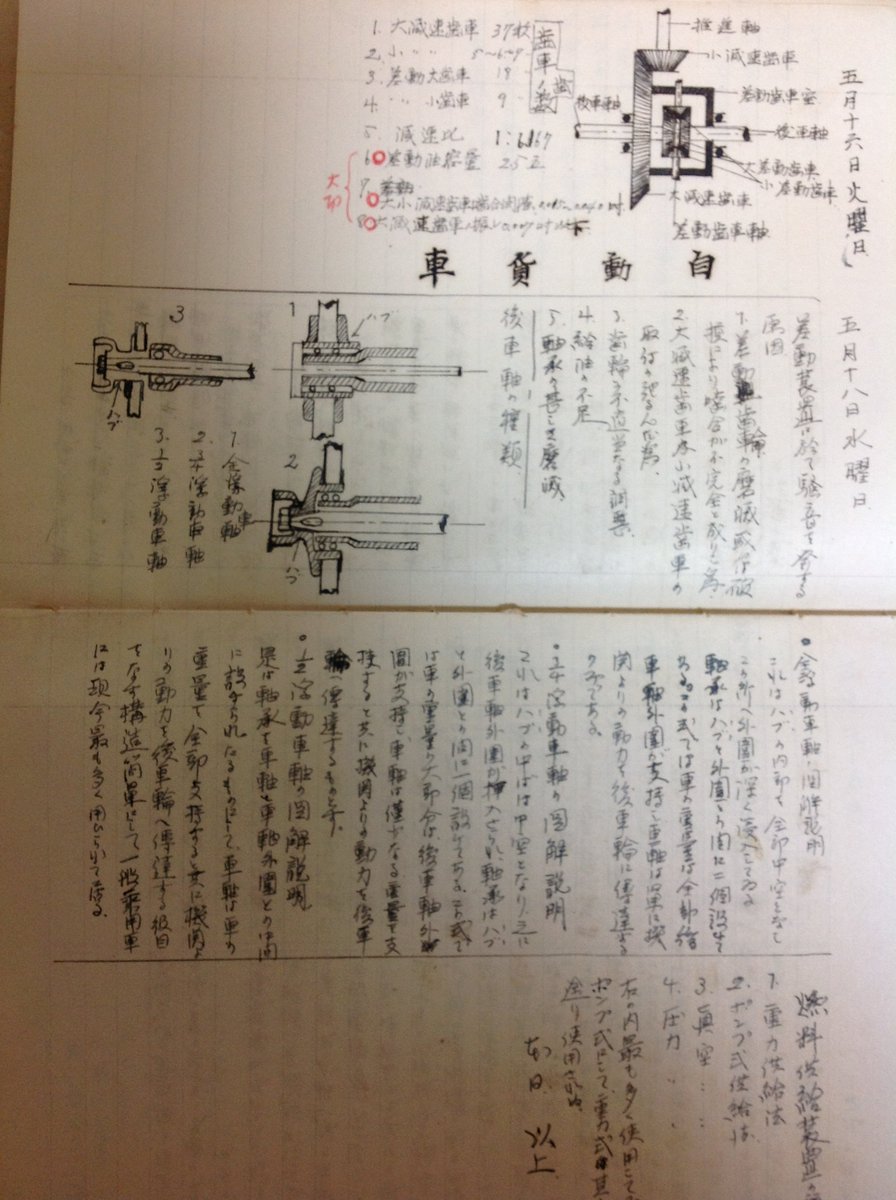 五月十六日火曜日
推進軸
小減速歯車
差動歯車室
後車軸
後車軸
大差動歯車
小差動歯車
大減速歯車
差動歯車軸
歯車ノ歯数
1. 大減速歯車 37枚
2. 小 〃 〃 5〜6-9
3. 差動大歯車 18
4. 〃 小歯車 9
5. 減速比 1:6.167
6 差動油容量 2.5立
7
大小減速歯車噛合間隙
8 大減速歯車ノ振レ
大印
自動貨車
五月十八日水曜日
差動装置に於て騒音を発する
原因
1. 差動歯輪の磨滅或は破
損により噛合が不完全と成りし為
2. 大減速歯車及小減速歯車の
取付の
3. 歯輪の不適当なる調整
4. 給油の不足
5. 軸承の甚しき磨滅
後車軸の種類
1
ハブ
2
ハブ
3
ハブ
1. 全浮動車軸
2. 3/4浮動車軸
3. 1/2浮動車軸
○全浮動車軸ノ図解説明
これはハブの内部を全部中空となし
この所へ外圍が深く侵入してゐる
軸承はハブと外圍との間に二個設けて
ある。この式では車の重量は全部後
車軸外圍が支持し車軸は単に機
関よりの動力を後車輪に傳達する
のみである。
○3/4浮動車軸の図解説明
これはハブの半ばは中空となり之に
後車軸外圍が挿入され軸承はハブ
と外圍との間に一個設けてある。この式で
は車の重量の大部分は後車軸外
圍が支持し、車軸は僅少なる重量を支
持すると共に機関よりの動力を後車
輪へ傳達するものとす。
○1/2浮動車軸の図解説明
是は軸承を車軸と車軸外圍との間
に設けられたるものにして、車軸は車の
重量を全部支持すると共に機関よ
りの動力を後車輪へ傳達する役目
をなす構造簡單にして一般乗用車
には現今最も多く用ひられて居る。
燃料供給装置の
1. 重力供給法
2. ポンプ式供給法
3. 真空 〃 〃
4. 圧力 〃
右の内最も多く使用して
ポンプ式にして、重力式は其
余り使用されぬ
本日 以上